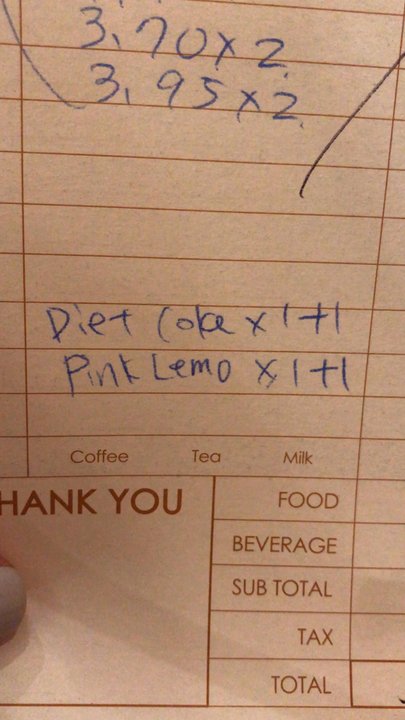 3.70 x 2
3.95 x 2
Diet Coke x 1+1
Pink Lemo x 1+1
Coffee Tea Milk
HANK YOU
FOOD
BEVERAGE
SUB TOTAL
TAX
TOTAL